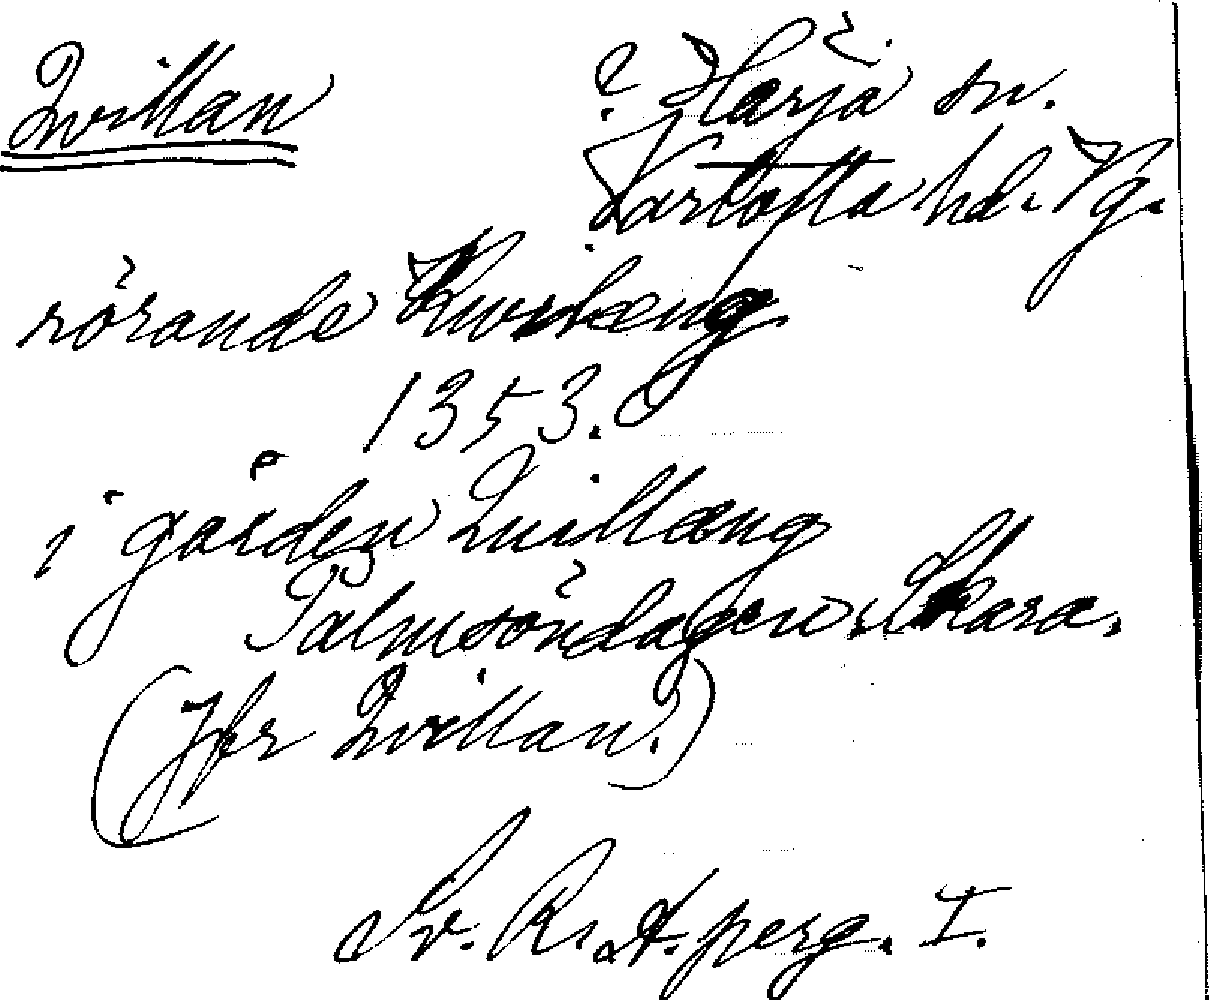 Qvillan ? Härja sn.
Vartofta hd. Vg.
rörande
1353.
i gården Quillæng
Palmsöndagen, Skara.
(Jfr Qvillan.)
Sv. R. A. perg. I.